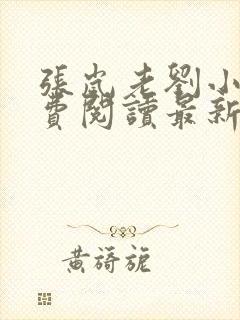 張嵐老劉小
費閱讀最新
黃篈旎